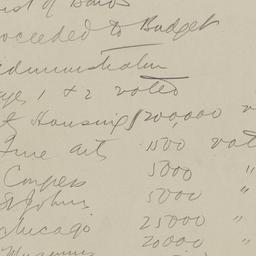 ist of Bonds
roceeded to Budget
dministration
ges 1 & 2 voted
t Housing $200,000 v
Fine Arts 1500 vot
Congess 5000 "
St Johns 5000 "
Chicago 25000 "
Museums 20000 "